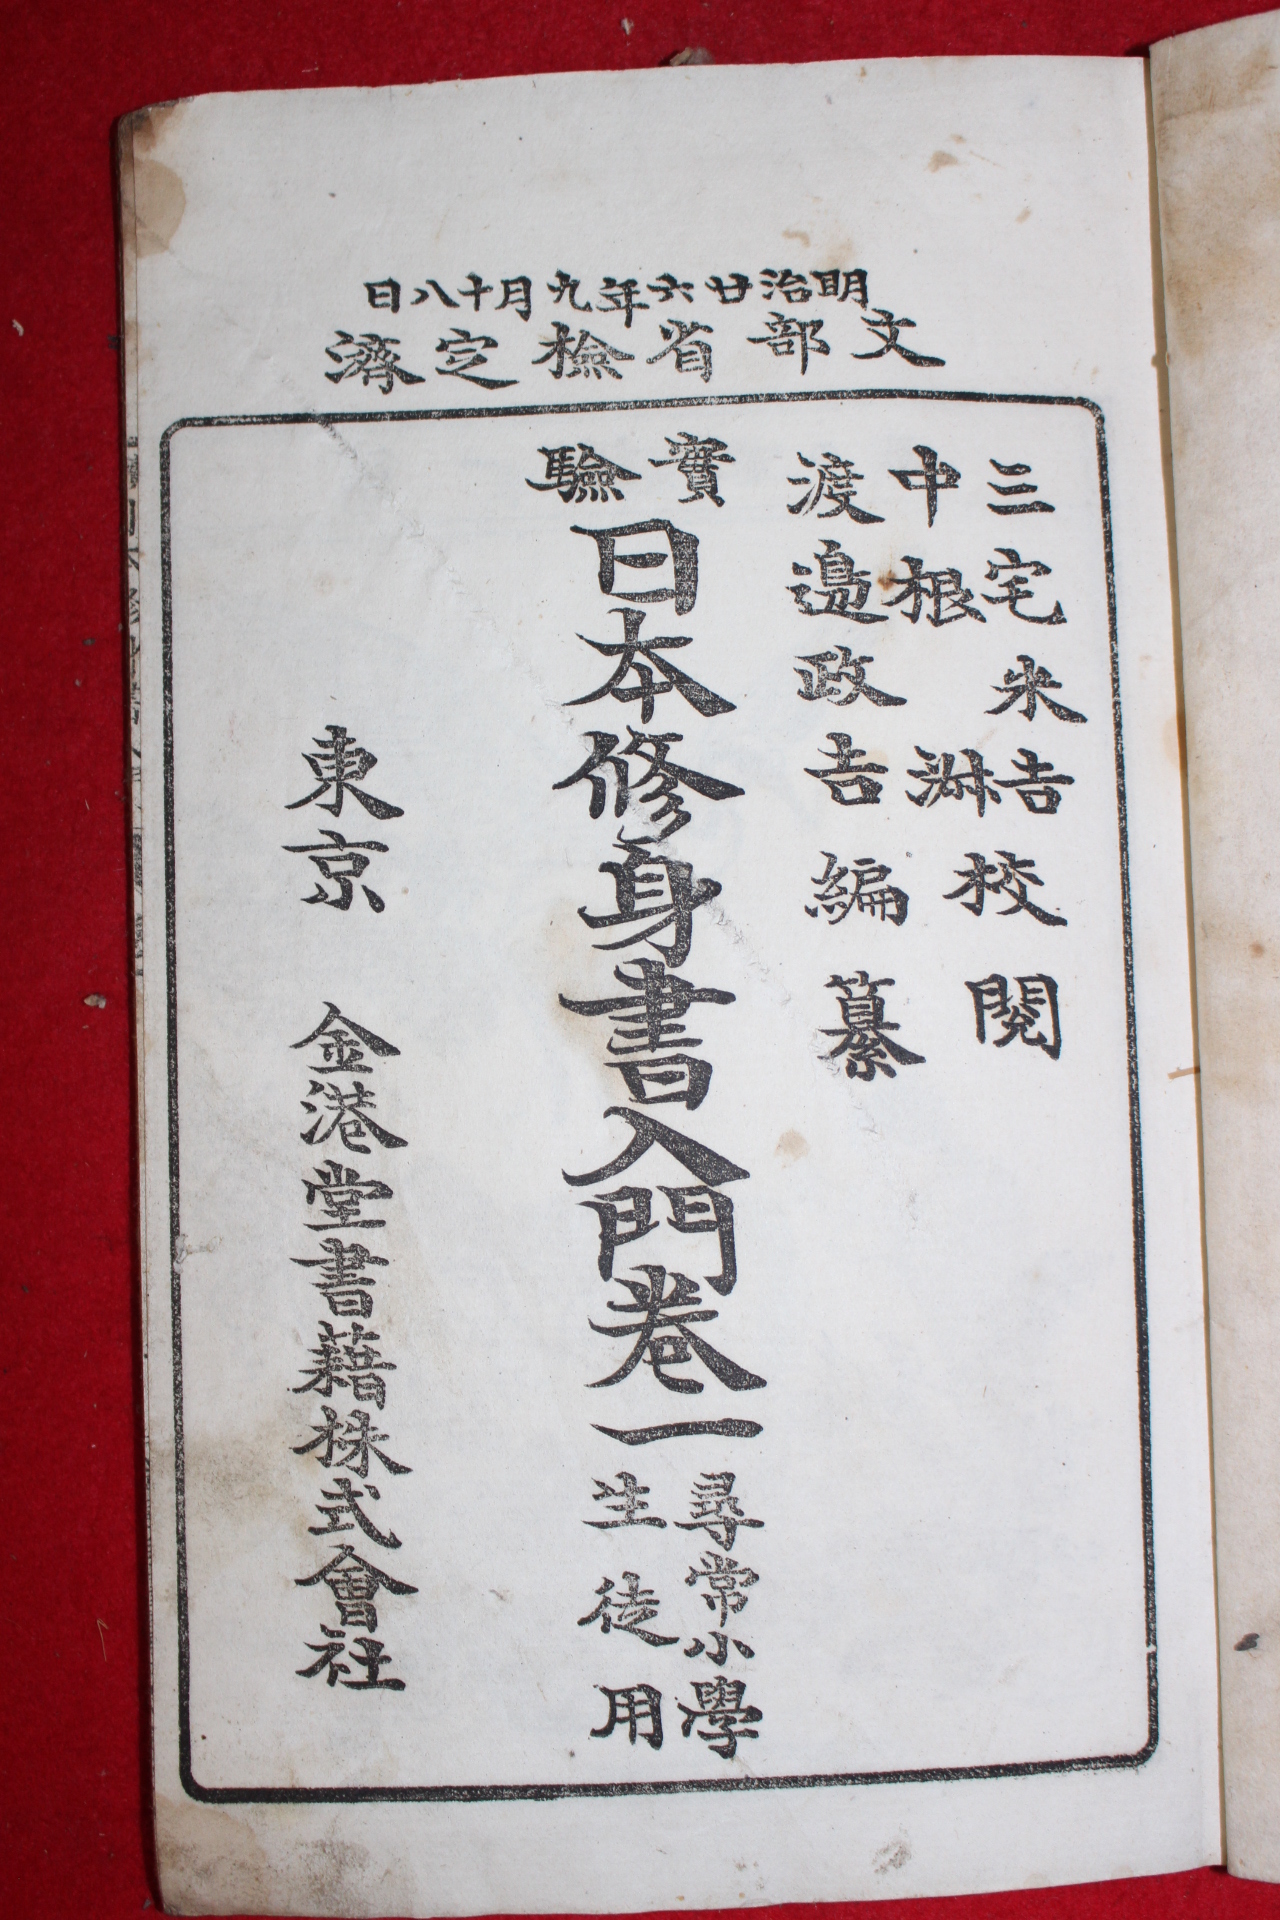 明治廿六年九月十八日
文部省檢定濟
三宅米吉
中根淑
校閱
渡邉政吉編纂
實驗
日本修身書入門卷一
尋常小學
生徒用
東京 金港堂書籍株式會社